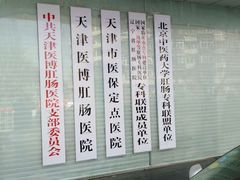 中共天津医博肛肠医院支部委员会
天津医博肛肠医院
天津市医保定点医院
专科联盟成员单位
北京中医药大学肛肠专科联盟单位